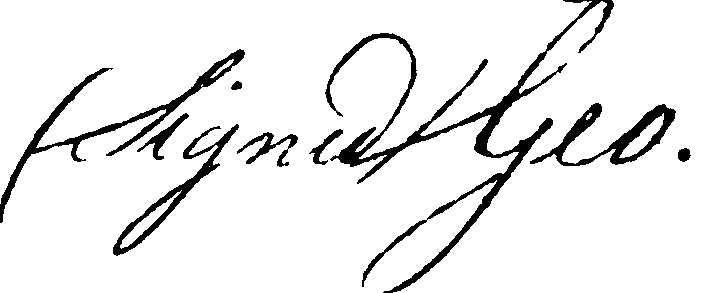 (Signed) Geo.